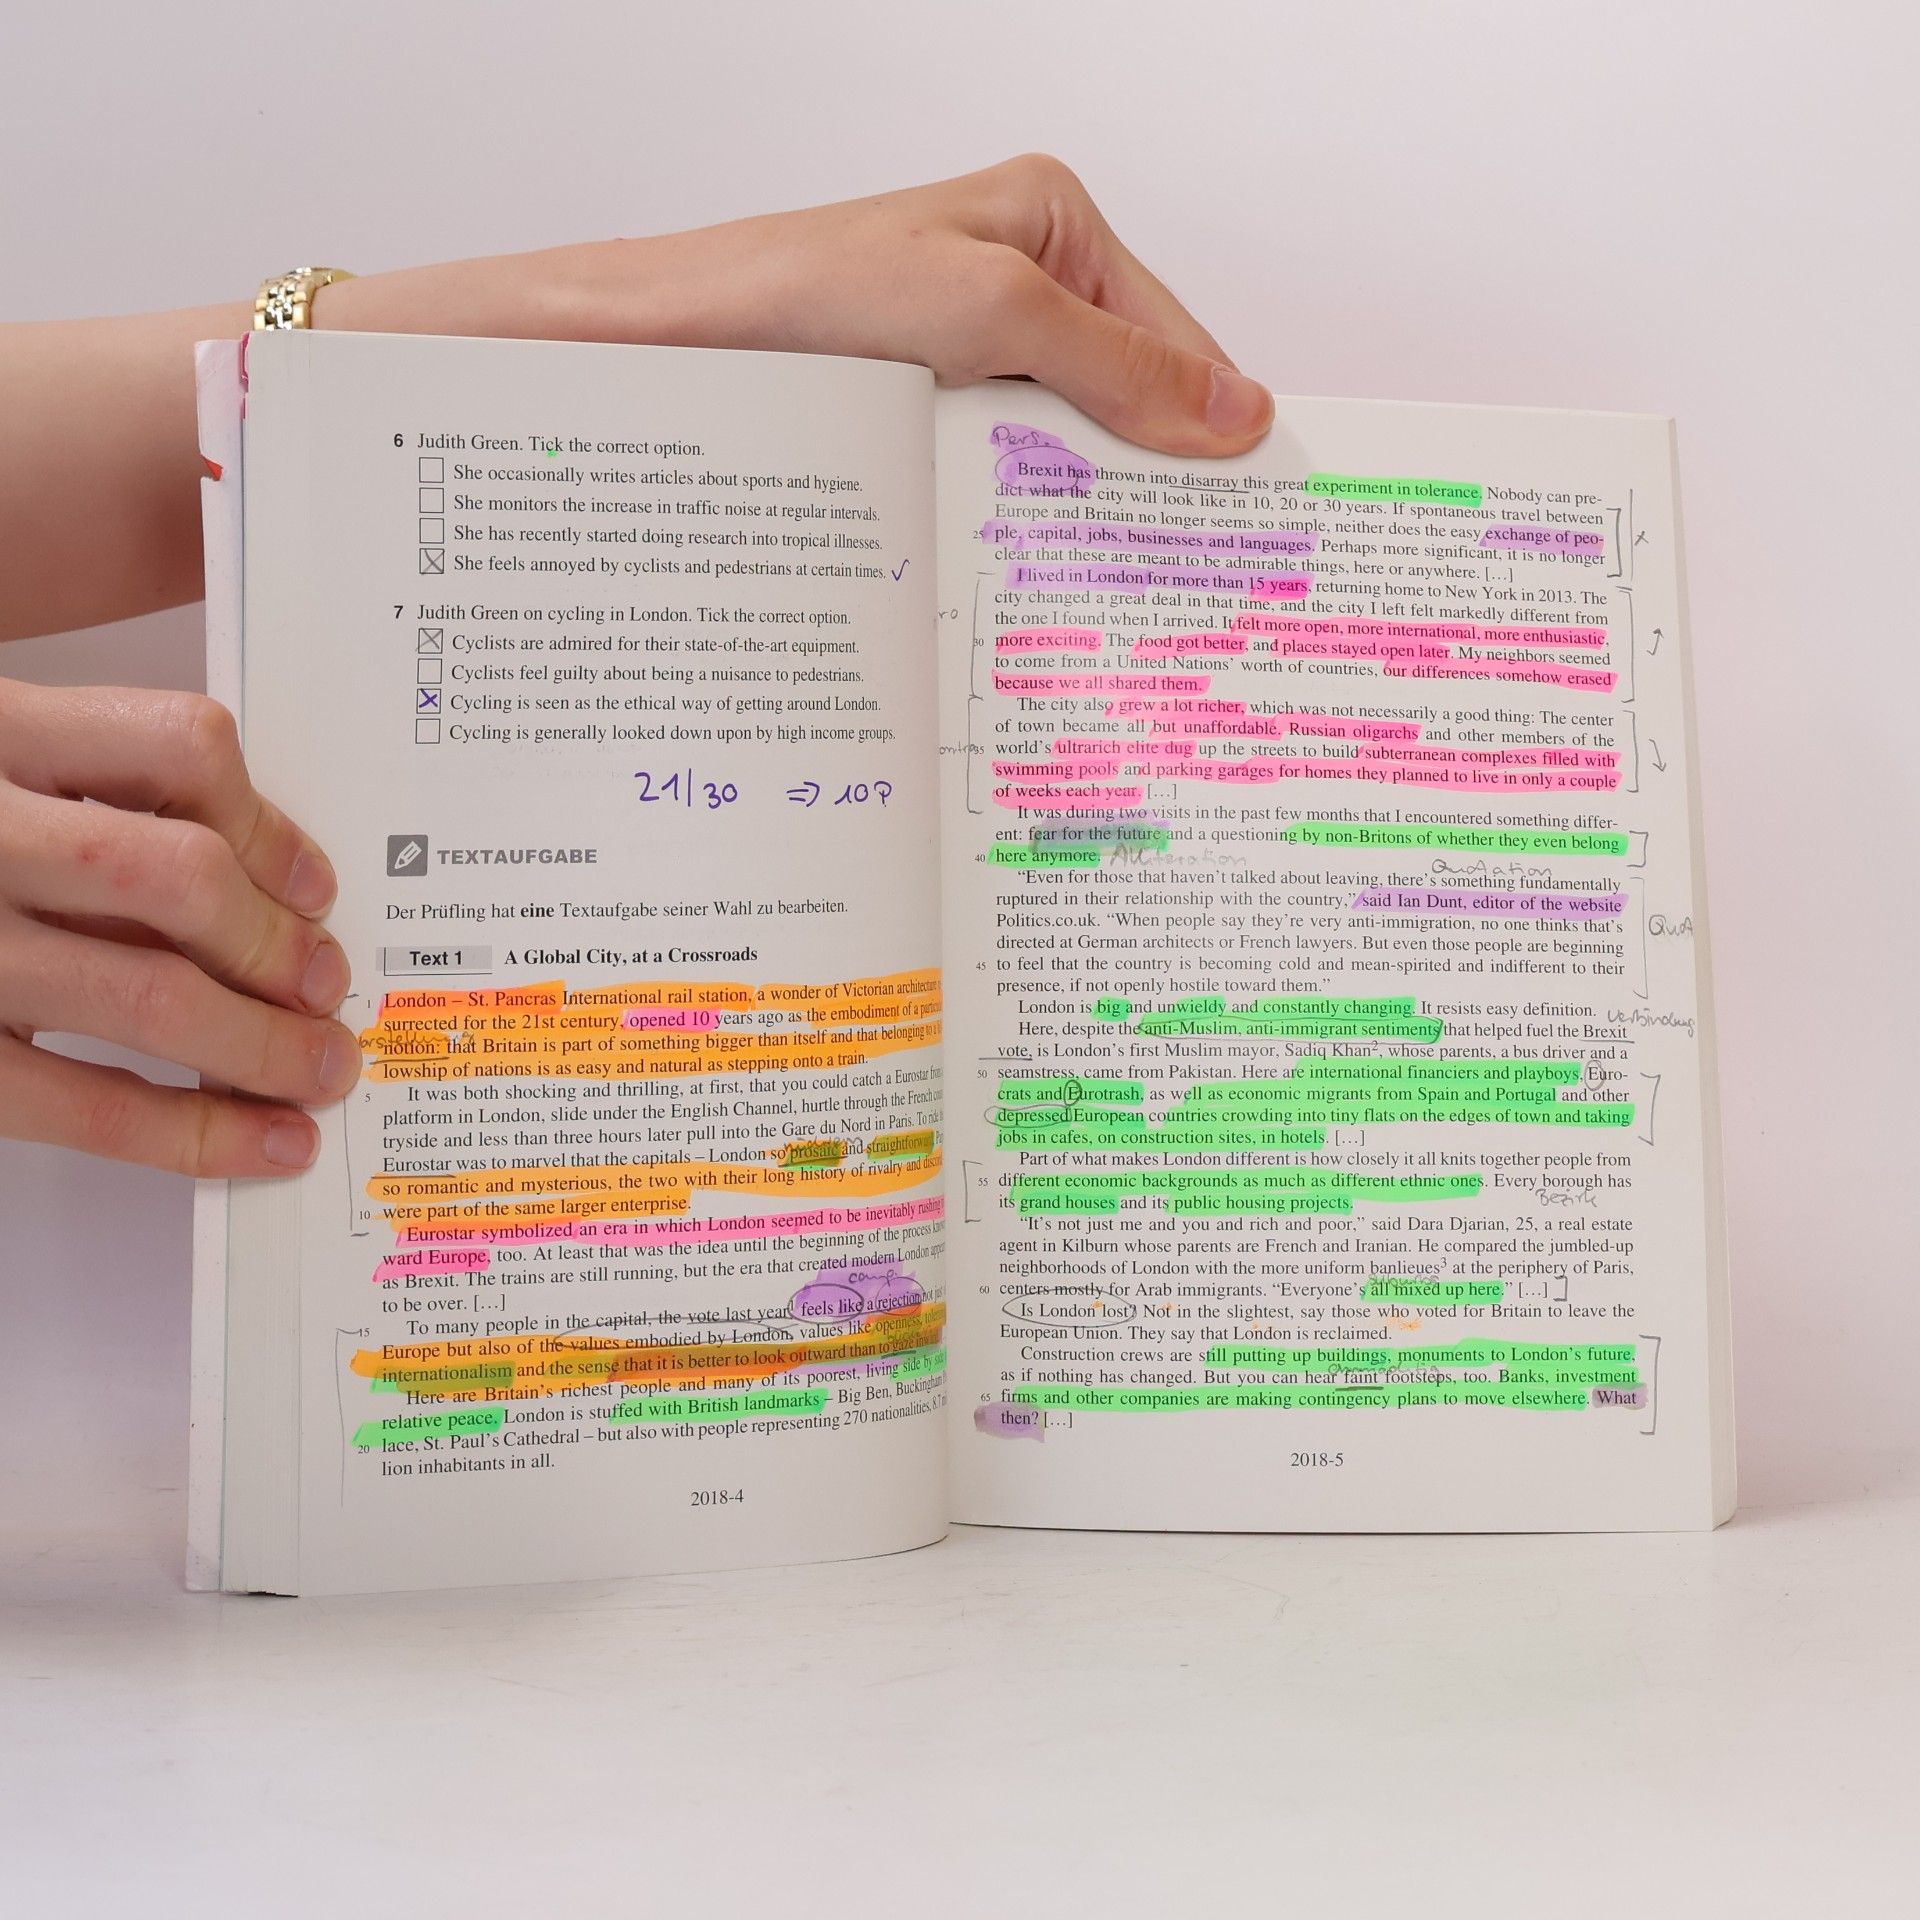 6 Judith Green. Tick the correct option.
She occasionally writes articles about sports and hygiene.
She monitors the increase in traffic noise at regular intervals.
She has recently started doing research into tropical illnesses.
She feels annoyed by cyclists and pedestrians at certain times. ✓
7 Judith Green on cycling in London. Tick the correct option.
Cyclists are admired for their state-of-the-art equipment.
Cyclists feel guilty about being a nuisance to pedestrians.
Cycling is seen as the ethical way of getting around London.
Cycling is generally looked down upon by high income groups.
21/30 => 10P
TEXTAUFGABE
Der Prüfling hat eine Textaufgabe seiner Wahl zu bearbeiten.
Text 1 A Global City, at a Crossroads
1 London – St. Pancras International rail station, a wonder of Victorian architecture
surrected for the 21st century, opened 10 years ago as the embodiment of a
notion: that Britain is part of something bigger than itself and that belonging to a
lowship of nations is as easy and natural as stepping onto a train.
5 It was both shocking and thrilling, at first, that you could catch a Eurostar
platform in London, slide under the English Channel, hurtle through the French
tryside and less than three hours later pull into the Gare du Nord in Paris. To ride
Eurostar was to marvel that the capitals – London so prosaic and straightforward,
so romantic and mysterious, the two with their long history of rivalry and
10 were part of the same larger enterprise.
Eurostar symbolized an era in which London seemed to be inevitably rushing
ward Europe, too. At least that was the idea until the beginning of the process
as Brexit. The trains are still running, but the era that created modern London
comp.
to be over. […]
To many people in the capital, the vote last year¹ feels like a rejection not just
15 Europe but also of the values embodied by London, values like openness,
internationalism and the sense that it is better to look outward than to gaze
Here are Britain's richest people and many of its poorest, living side by
relative peace. London is stuffed with British landmarks – Big Ben, Buckingham
20 lace, St. Paul's Cathedral – but also with people representing 270 nationalities, 8.7
lion inhabitants in all.
2018-4
Pers.
Brexit has thrown into disarray this great experiment in tolerance. Nobody can pre-
dict what the city will look like in 10, 20 or 30 years. If spontaneous travel between
Europe and Britain no longer seems so simple, neither does the easy exchange of peo-
25 ple, capital, jobs, businesses and languages. Perhaps more significant, it is no longer
clear that these are meant to be admirable things, here or anywhere. […]
I lived in London for more than 15 years, returning home to New York in 2013. The
city changed a great deal in that time, and the city I left felt markedly different from
the one I found when I arrived. It felt more open, more international, more enthusiastic,
30 more exciting. The food got better, and places stayed open later. My neighbors seemed
to come from a United Nations' worth of countries, our differences somehow erased
because we all shared them.
The city also grew a lot richer, which was not necessarily a good thing: The center
of town became all but unaffordable. Russian oligarchs and other members of the
35 world's ultrarich elite dug up the streets to build subterranean complexes filled with
swimming pools and parking garages for homes they planned to live in only a couple
of weeks each year. […]
It was during two visits in the past few months that I encountered something differ-
ent: fear for the future and a questioning by non-Britons of whether they even belong
40 here anymore. Alliteration
Quotation
"Even for those that haven't talked about leaving, there's something fundamentally
ruptured in their relationship with the country," said Ian Dunt, editor of the website
Politics.co.uk. "When people say they're very anti-immigration, no one thinks that's
directed at German architects or French lawyers. But even those people are beginning
45 to feel that the country is becoming cold and mean-spirited and indifferent to their
presence, if not openly hostile toward them."
London is big and unwieldy and constantly changing. It resists easy definition.
Verbindung
Here, despite the anti-Muslim, anti-immigrant sentiments that helped fuel the Brexit
vote, is London's first Muslim mayor, Sadiq Khan², whose parents, a bus driver and a
50 seamstress, came from Pakistan. Here are international financiers and playboys, Euro-
crats and Eurotrash, as well as economic migrants from Spain and Portugal and other
depressed European countries crowding into tiny flats on the edges of town and taking
jobs in cafes, on construction sites, in hotels. […]
Part of what makes London different is how closely it all knits together people from
55 different economic backgrounds as much as different ethnic ones. Every borough has
its grand houses and its public housing projects. Bezirk
"It's not just me and you and rich and poor," said Dara Djarian, 25, a real estate
agent in Kilburn whose parents are French and Iranian. He compared the jumbled-up
neighborhoods of London with the more uniform banlieues³ at the periphery of Paris,
suburbs
60 centers mostly for Arab immigrants. "Everyone's all mixed up here." […]
Is London lost? Not in the slightest, say those who voted for Britain to leave the
European Union. They say that London is reclaimed.
Construction crews are still putting up buildings, monuments to London's future,
as if nothing has changed. But you can hear faint footsteps, too. Banks, investment
65 firms and other companies are making contingency plans to move elsewhere. What
then? […]
2018-5